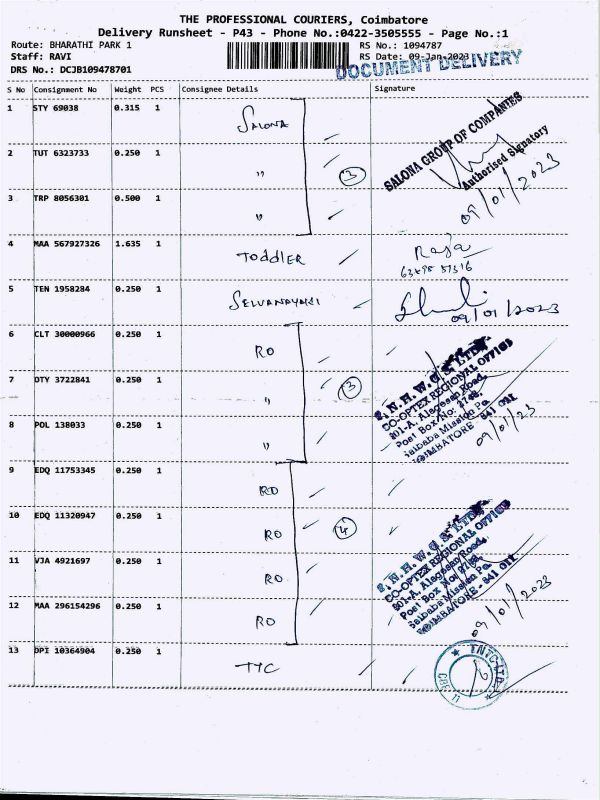 THE PROFESSIONAL COURIERS, Coimbatore
Delivery Runsheet - P43 - Phone No.:0422-3505555 - Page No.:1
Route: BHARATHI PARK 1 RS No.: 1094787
Staff: RAVI RS Date: 09-Jan-2023
DRS No.: DCJB109478701 DOCUMENT DELIVERY
S No Consignment No Weight PCS Consignee Details Signature
1 STY 69038 0.315 1 SALONA
SALONA GROUP OF COMPANIES
2 TUT 6323733 0.250 1 " 3
Authorised Signatory
3 TRP 8056301 0.500 1 "
09/01/2023
4 MAA 567927326 1.635 1 TODDLER Raja
5 TEN 1958284 0.250 1 SELVANAYAKI
09/01/2023
6 CLT 30000966 0.250 1 RO
7 DTY 3722841 0.250 1 " 3
CO-OPTEX REGIONAL OFFICE
201-A, Alagesan Road,
Post Box No:
Saibaba Mission Po.
COIMBATORE - 641 011
8 POL 138033 0.250 1 "
09/01/23
9 EDQ 11753345 0.250 1 RO
10 EDQ 11320947 0.250 1 RO 4
11 VJA 4921697 0.250 1 RO
CO-OPTEX REGIONAL OFFICE
201-A, Alagesan Road,
Post Box No
Saibaba Mission Po.
COIMBATORE - 641 011
12 MAA 296154296 0.250 1 RO
09/01/2023
13 DPI 10364904 0.250 1 TTC
TNTC LTD
CBE 11